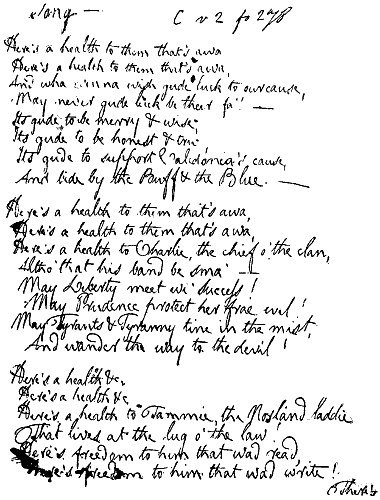 Song —
C v 2 fo 278
Here's a health to them that's awa
Here's a health to them that's awa,
And wha winna wish gude luck to our cause,
May never gude luck be their fa'! —
Its gude to be merry & wise,
Its gude to be honest & true,
Its gude to support Caledonia's cause,
And bide by the Buff & the Blue. —
Here's a health to them that's awa,
Here's a health to them that's awa,
Here's a health to Charlie, the chief o' the clan,
Altho' that his band be sma' —
May Liberty meet wi' success!
May Prudence protect her frae evil!
May Tyrants & Tyranny tine in the mist,
And wander the way to the devil!
Here's a health &c
Here's a health &c
Here's a health to Tammie, the Norland laddie
That lives at the lug o' the law!
Here's freedom to him that wad read,
Here's freedom to him that wad write!